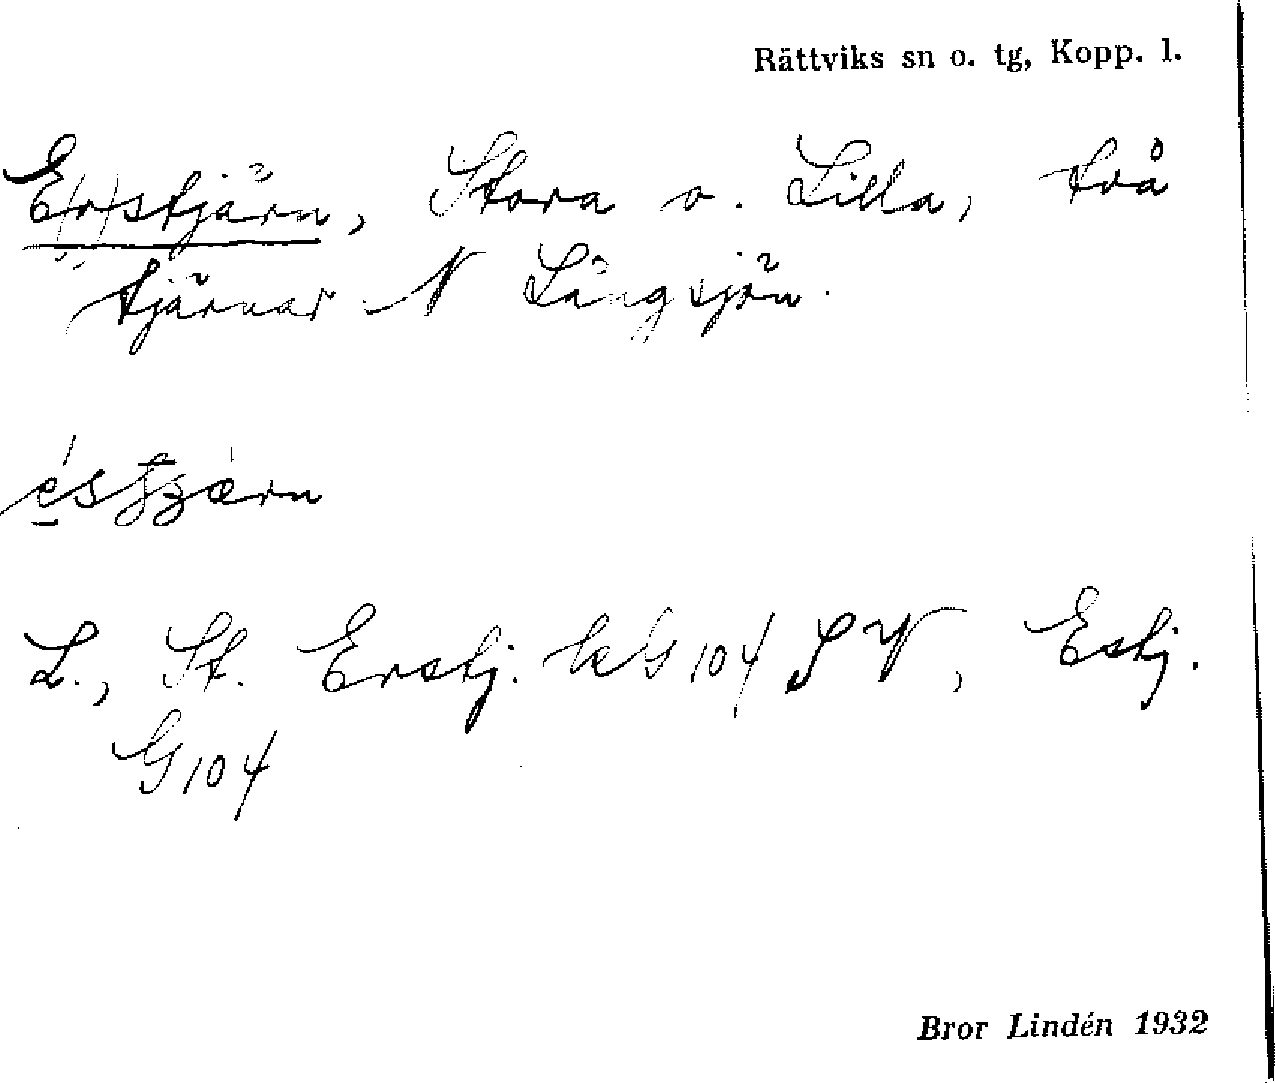 Rättviks sn o. tg, Kopp. l.
E(r)stjärn, Stora o. Lilla, två
tjärnar N Långsjön.
L., St. Erstj. kG104 SV, Estj.
G104
Bror Lindén 1932